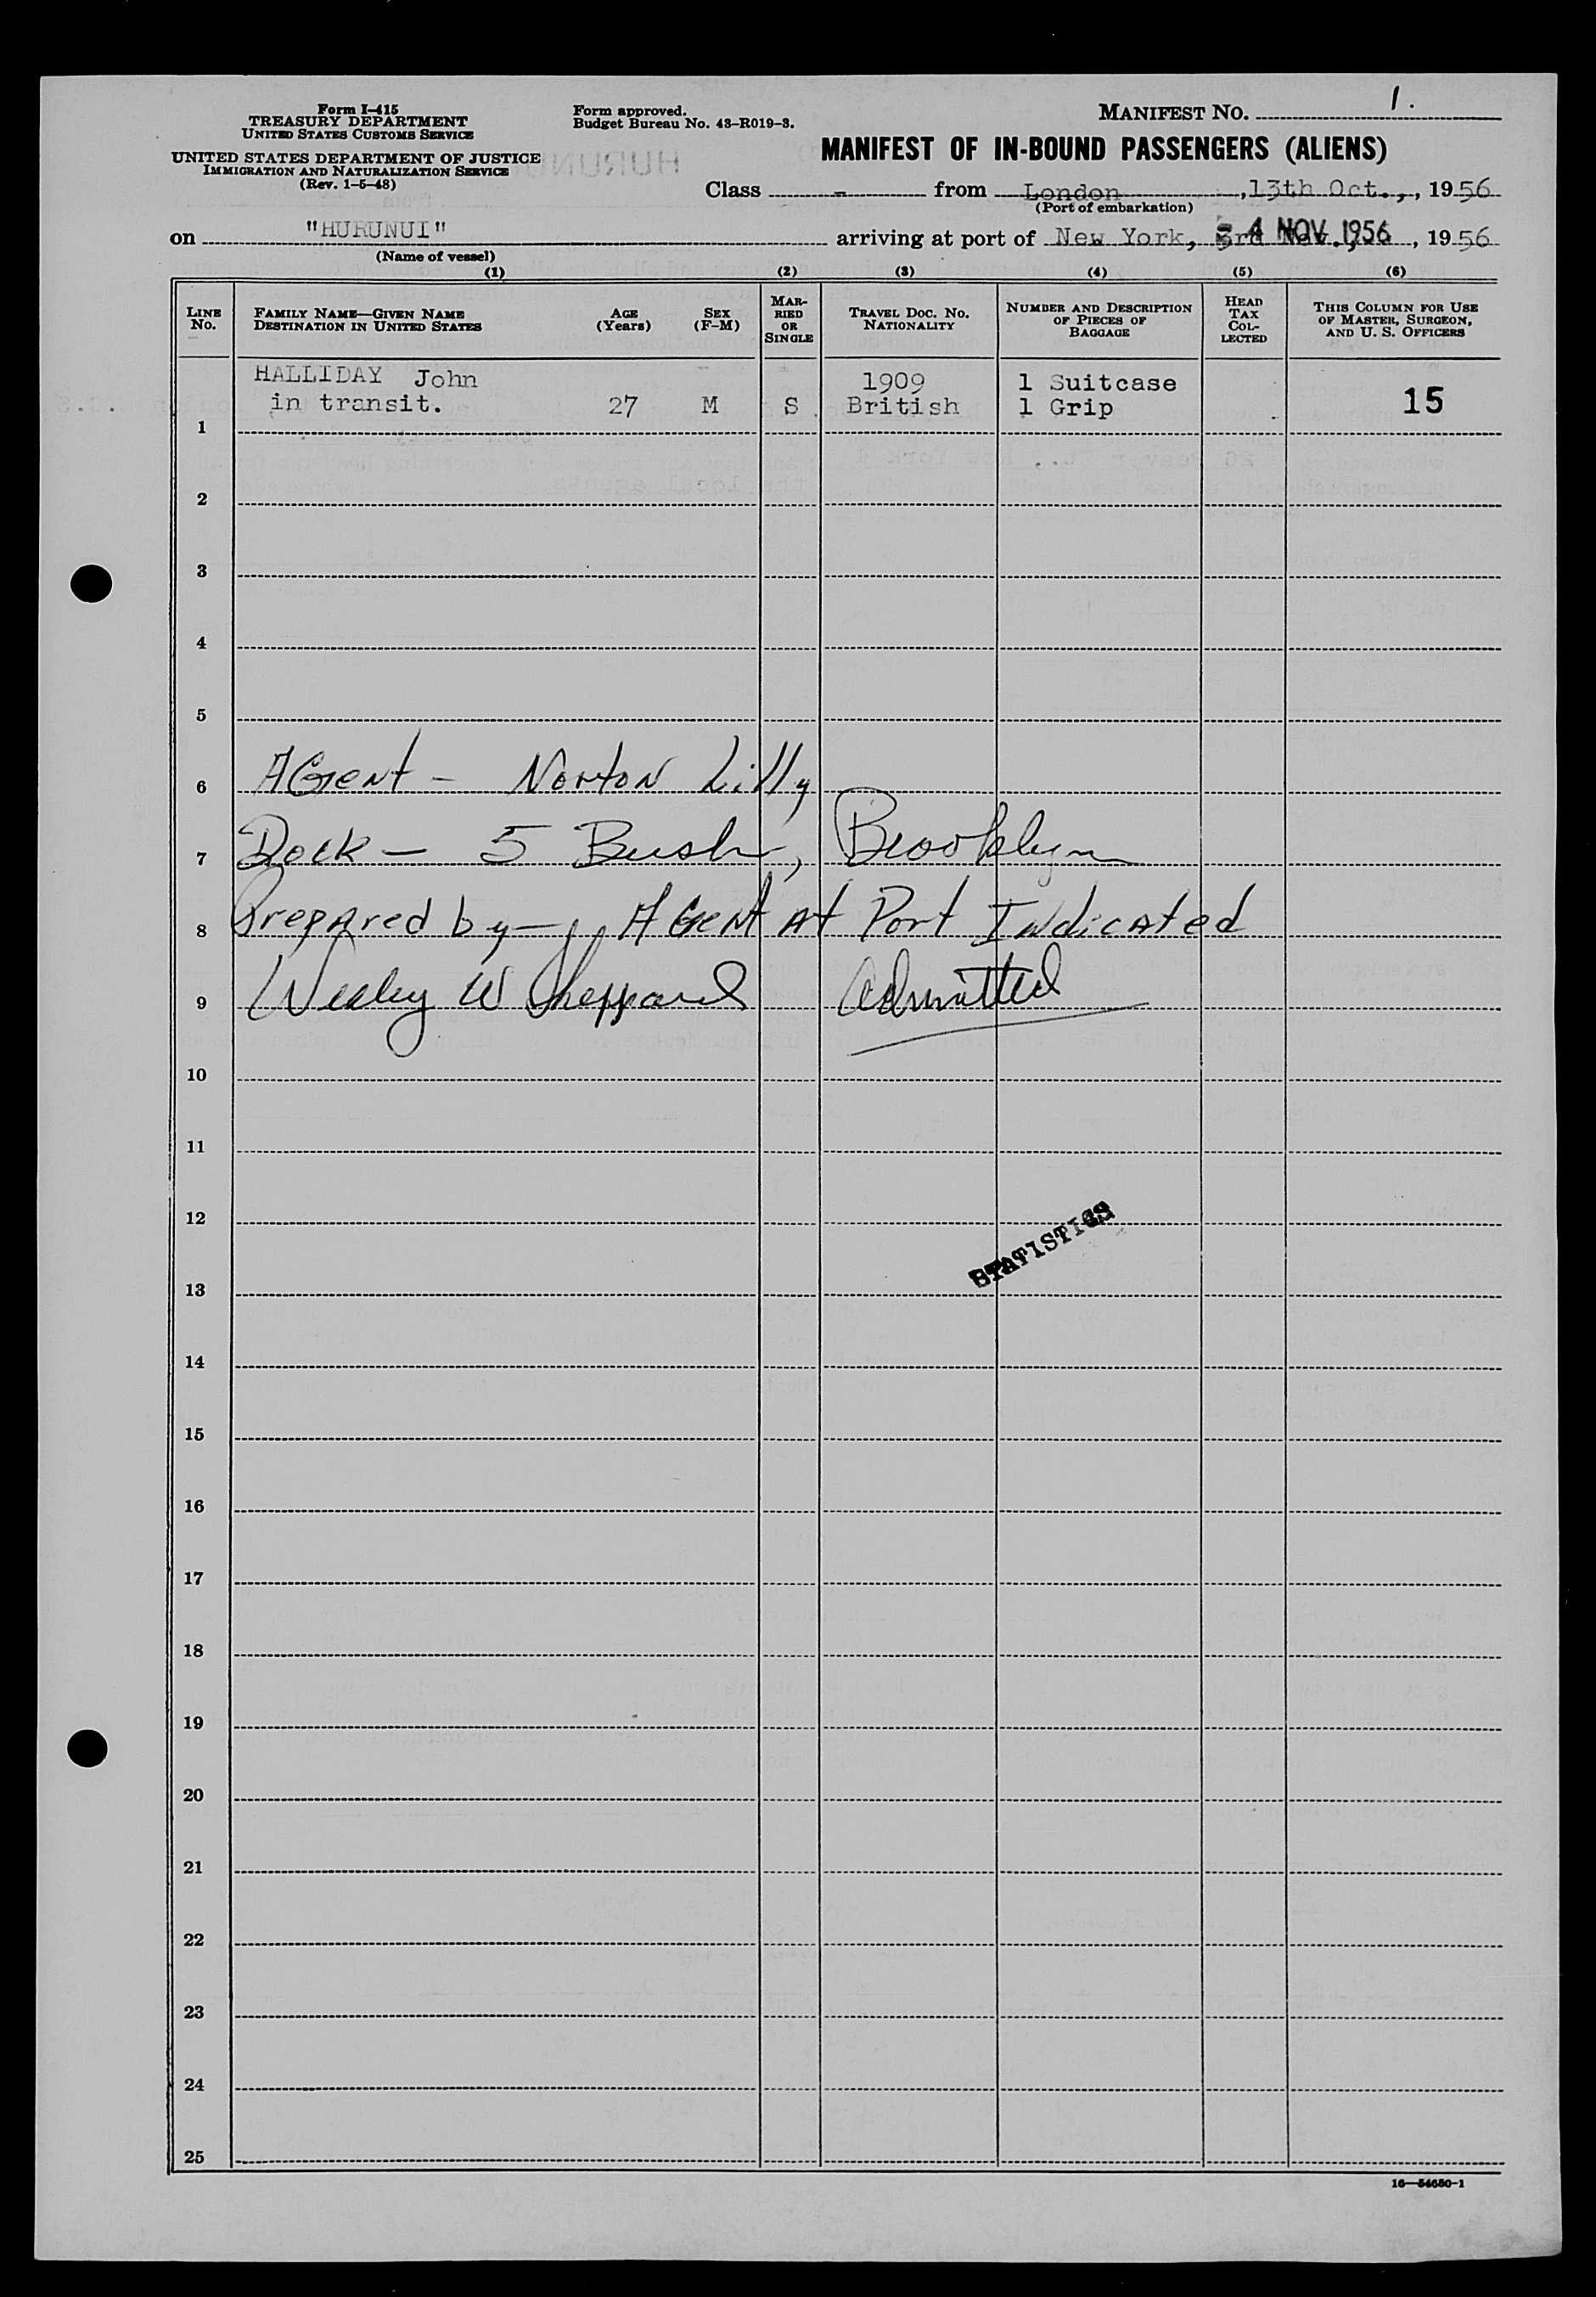 Form I-415
TREASURY DEPARTMENT
UNITED STATES CUSTOMS SERVICE
UNITED STATES DEPARTMENT OF JUSTICE
IMMIGRATION AND NATURALIZATION SERVICE
(Rev. 1-5-48)
Form approved.
Budget Bureau No. 43-R019-3.
MANIFEST NO. 1.
MANIFEST OF IN-BOUND PASSENGERS (ALIENS)
Class - from London, 13th Oct., 1956
(Port of embarkation)
on "HURUNUI" arriving at port of New York, 3rd 4 NOV 1956, 1956
(Name of vessel)
(1) (2) (3) (4) (5) (6)
LINE No. FAMILY NAME—GIVEN NAME DESTINATION IN UNITED STATES AGE (Years) SEX (F-M) MARRIED OR SINGLE TRAVEL DOC. NO. NATIONALITY NUMBER AND DESCRIPTION OF PIECES OF BAGGAGE HEAD TAX COLLECTED THIS COLUMN FOR USE OF MASTER, SURGEON, AND U. S. OFFICERS
HALLIDAY John 1909 1 Suitcase
in transit. 27 M S British 1 Grip 15
1
2
3
4
5
6 AGent - Norton Lilly
7 Dock - 5 Bush, Brooklyn
8 Prepared by - AGent At Port Indicated
9 Wesley W Sheppard Admitted
10
11
12
STATISTICS
13
14
15
16
17
18
19
20
21
22
23
24
25
16—54650-1